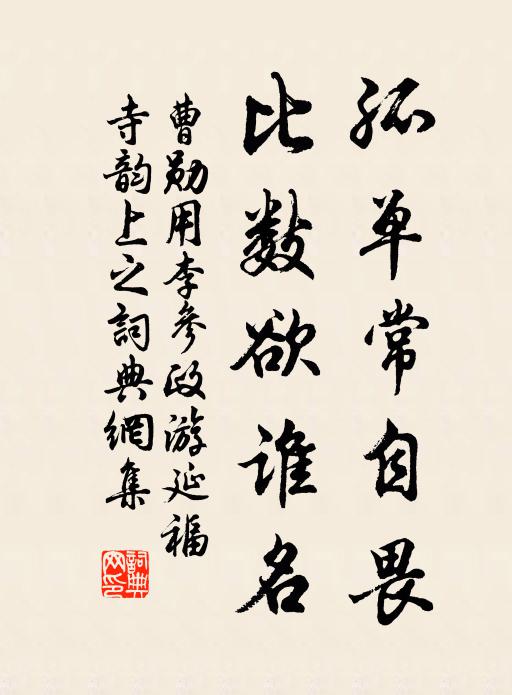 孤单常自畏
比数欲谁名
曹勋用李参政游延福
寺韵上之詞典網集
詞典网印